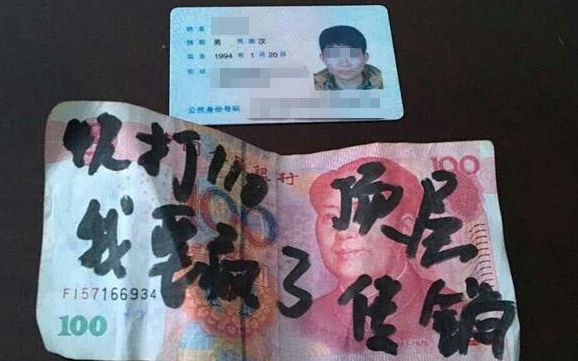 姓名
性别 男 民族 汉
出生 1994 年 1 月 20 日
住址
公民身份号码
快打110 顶层
我要疯了 传销
银行
100
100
FI57166934
100